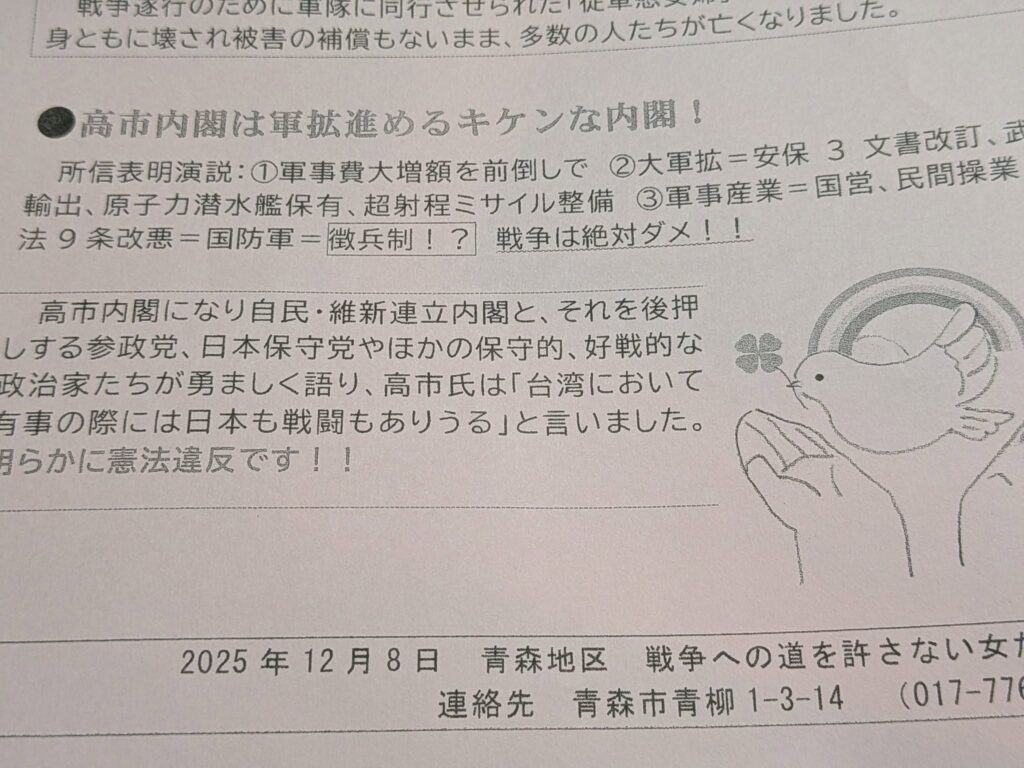 戦争遂行のために軍隊に同行させられた「従軍慰安婦」
身ともに壊され被害の補償もないまま、多数の人たちが亡くなりました。
●高市内閣は軍拡進めるキケンな内閣！
所信表明演説：①軍事費大増額を前倒しで ②大軍拡＝安保 3 文書改訂、武
輸出、原子力潜水艦保有、超射程ミサイル整備 ③軍事産業＝国営、民間操業
法 9 条改悪＝国防軍＝徴兵制！？ 戦争は絶対ダメ！！
高市内閣になり自民・維新連立内閣と、それを後押
しする参政党、日本保守党やほかの保守的、好戦的な
政治家たちが勇ましく語り、高市氏は「台湾において
有事の際には日本も戦闘もありうる」と言いました。
明らかに憲法違反です！！
2025 年 12 月 8 日 青森地区 戦争への道を許さない女た
連絡先 青森市青柳 1-3-14 （017-776